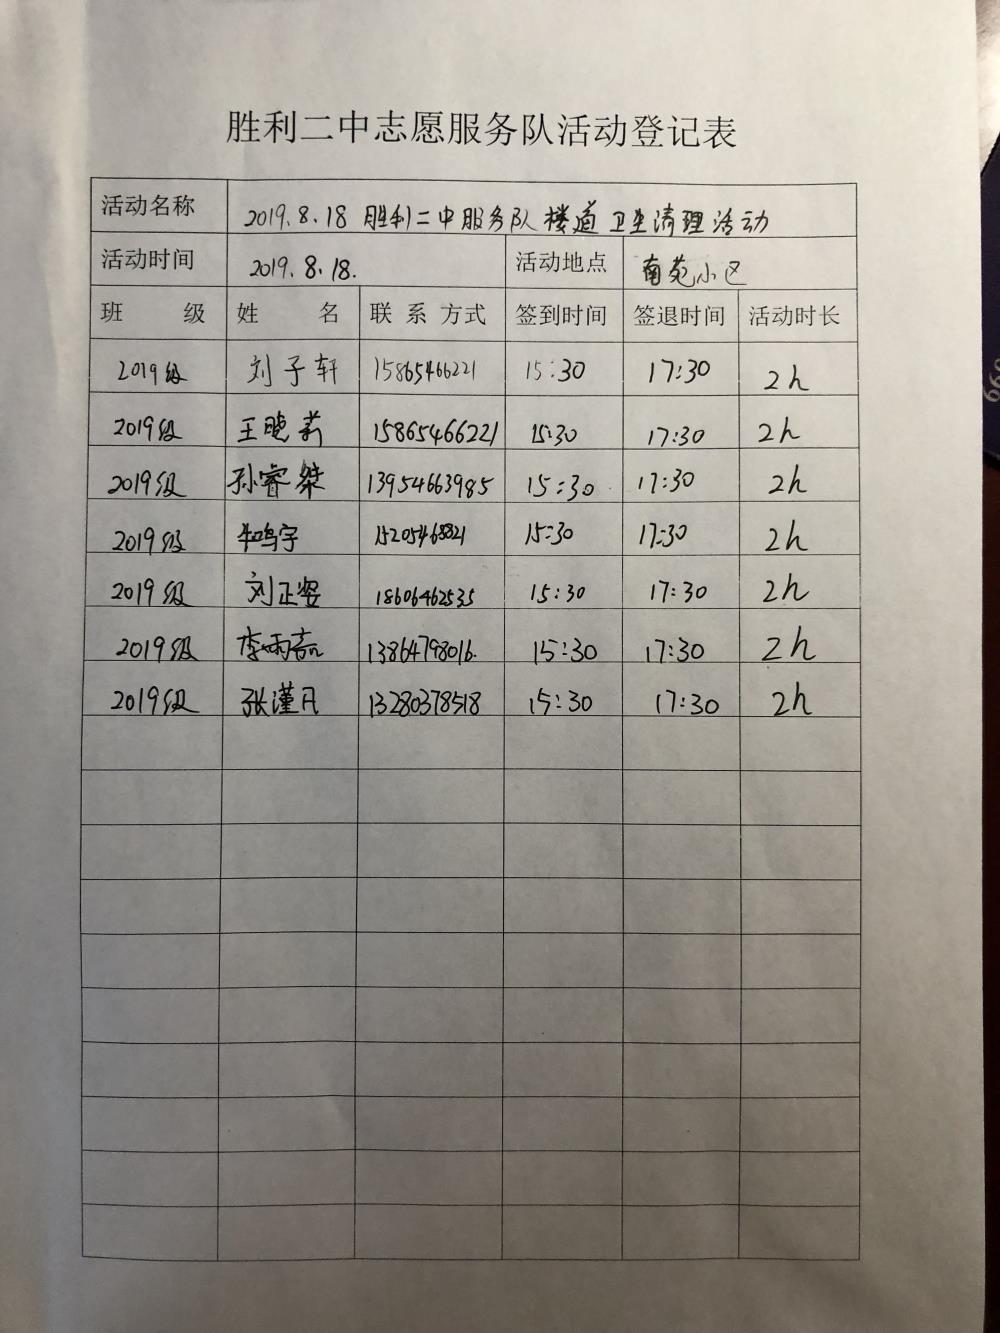 胜利二中志愿服务队活动登记表
活动名称 2019.8.18 胜利二中服务队楼道卫生清理活动
活动时间 2019.8.18. 活动地点 南苑小区
班 级 姓 名 联 系 方式 签到时间 签退时间 活动时长
2019级 刘子轩 15865466221 15:30 17:30 2h
2019级 王晓莉 15865466221 15:30 17:30 2h
2019级 孙睿桀 13954663985 15:30 17:30 2h
2019级 牛鸣宇 15205468821 15:30 17:30 2h
2019级 刘正姿 18606462535 15:30 17:30 2h
2019级 李雨嘉 13864798016. 15:30 17:30 2h
2019级 张瑾凡 13280378518 15:30 17:30 2h